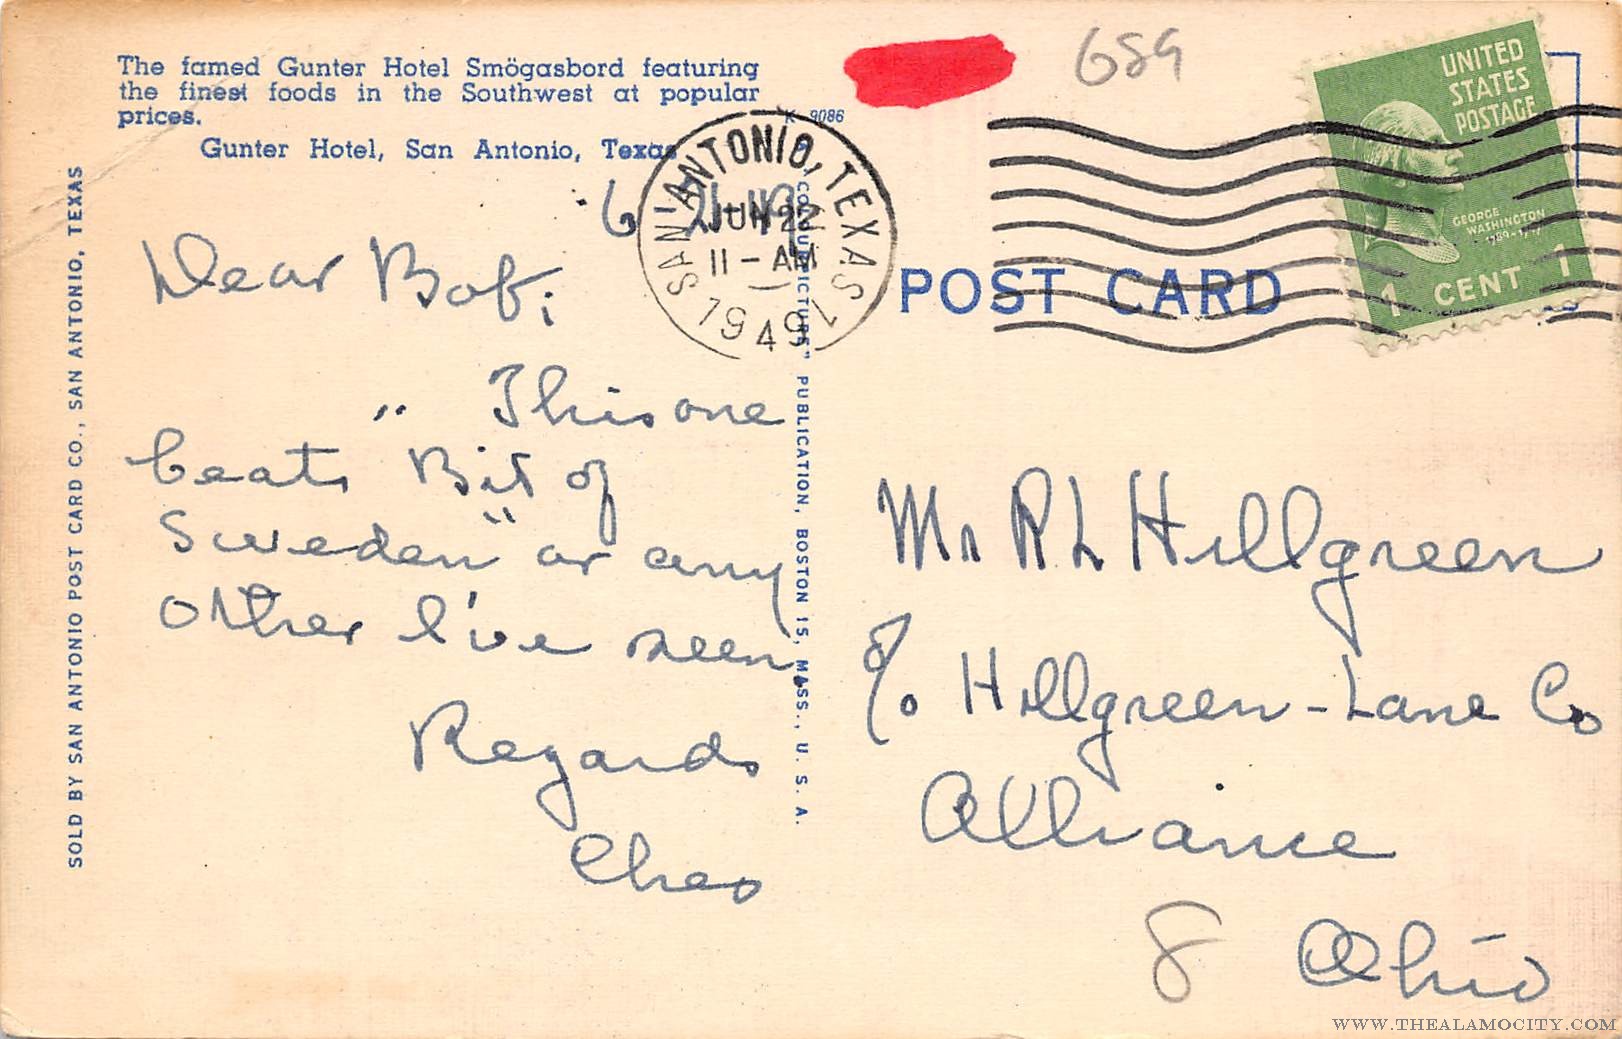 The famed Gunter Hotel Smögasbord featuring
the finest foods in the Southwest at popular
prices.
Gunter Hotel, San Antonio, Texas
K 9086
659
UNITED
STATES
POSTAGE
GEORGE
WASHINGTON
1789-1797
1 CENT 1
SAN ANTONIO, TEXAS
JUN 22
11 - AM
1949
POST CARD
Dear Bob:
" This one
beats Bit of
Sweden" or any
other I've seen.
Regards
Ches
Mr R L Hillgreen
c/o Hillgreen-Lane Co
Alliance
8 Ohio
SOLD BY SAN ANTONIO POST CARD CO., SAN ANTONIO, TEXAS
PUBLICATION, BOSTON 15, MASS., U. S. A.
WWW.THEALAMOCITY.COM